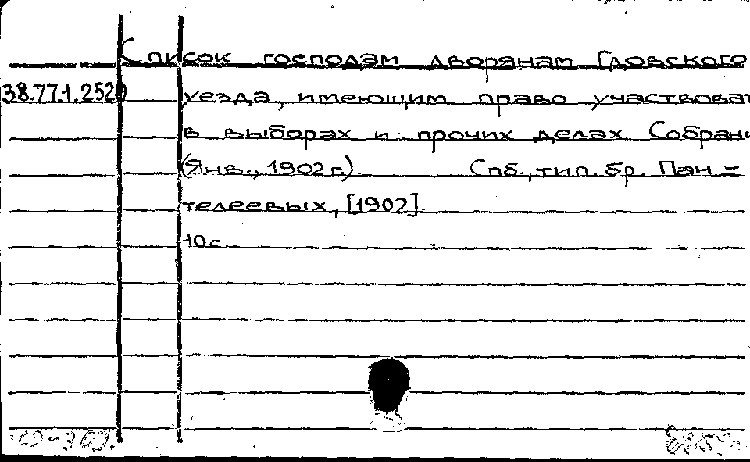 Список господам дворянам Гдовского
38.77.1.252
уезда, имеющим право участвоват
в выборах и прочих делах Собрани
(Янв., 1902 г.) Спб., тип. бр. Пан-
телеевых, [1902]
10 с.